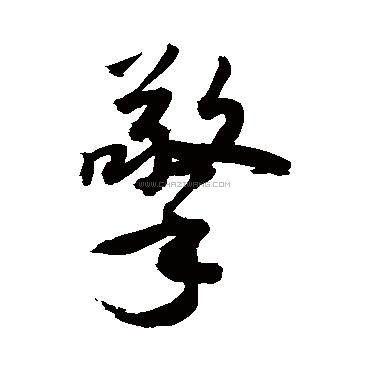 擎
WWW.CHAZIWANG.COM